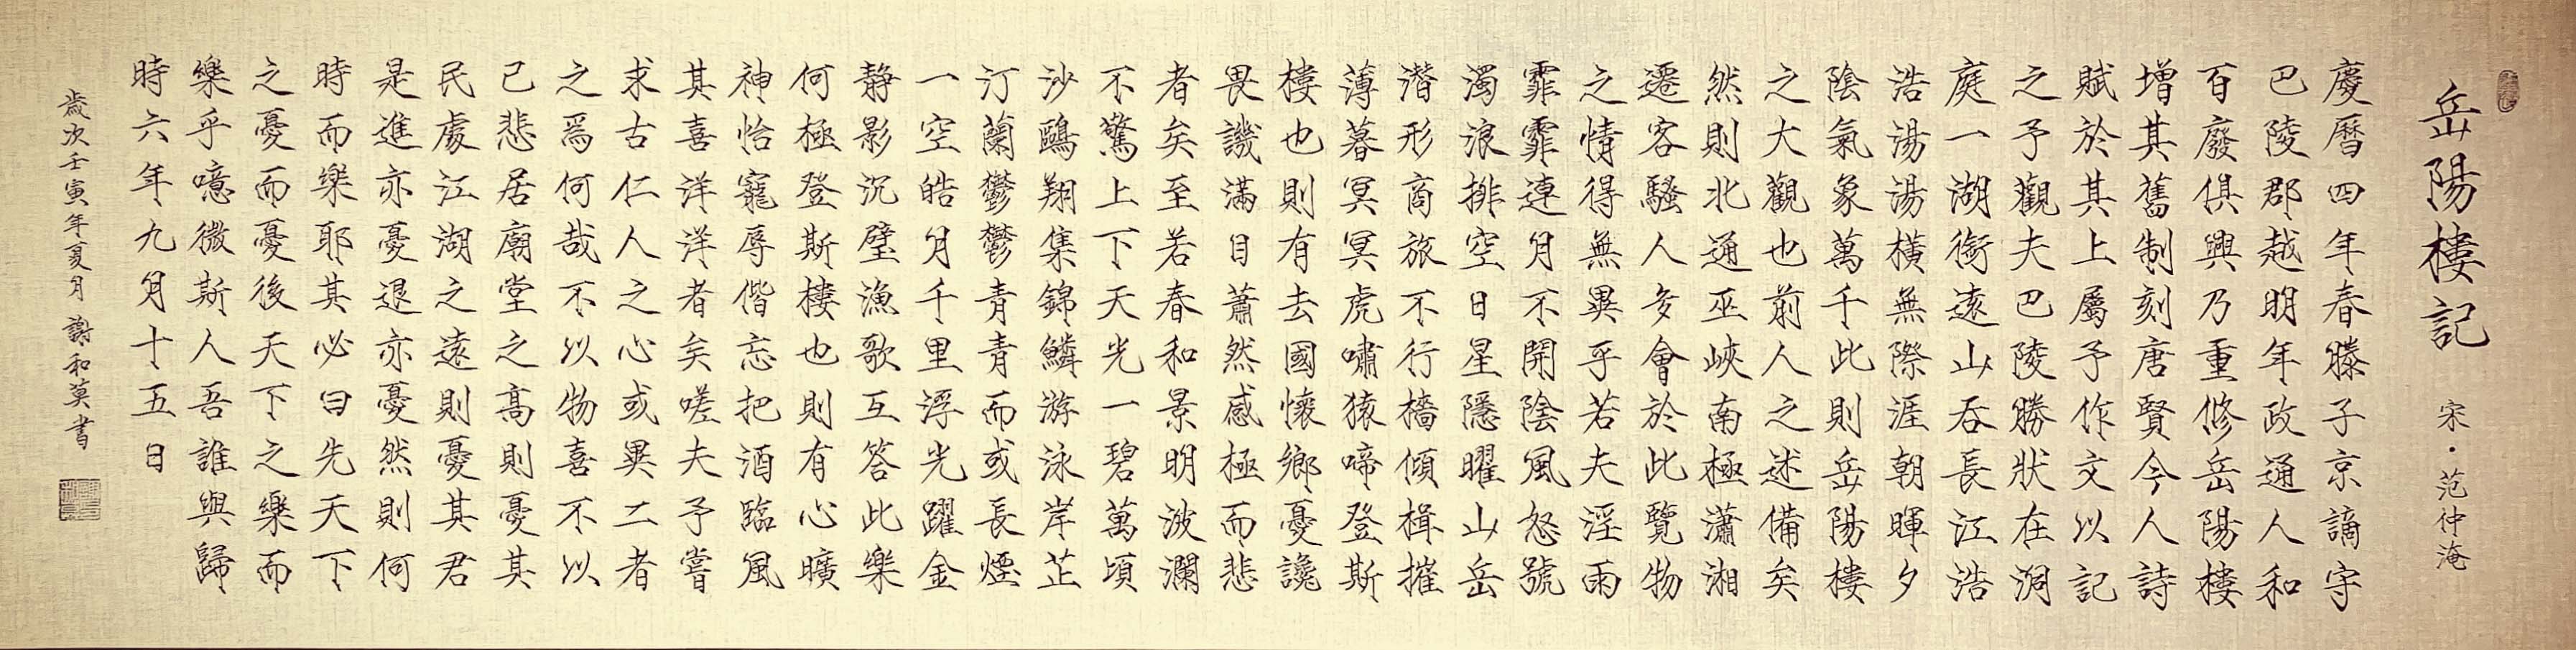 岳陽樓記 宋·范仲淹
慶曆四年春滕子京謫守
巴陵郡越明年政通人和
百廢俱興乃重修岳陽樓
增其舊制刻唐賢今人詩
賦於其上屬予作文以記
之予觀夫巴陵勝狀在洞
庭一湖銜遠山吞長江浩
浩湯湯橫無際涯朝暉夕
陰氣象萬千此則岳陽樓
之大觀也前人之述備矣
然則北通巫峽南極瀟湘
遷客騷人多會於此覽物
之情得無異乎若夫淫雨
霏霏連月不開陰風怒號
濁浪排空日星隱曜山岳
潛形商旅不行檣傾楫摧
薄暮冥冥虎嘯猿啼登斯
樓也則有去國懷鄉憂讒
畏譏滿目蕭然感極而悲
者矣至若春和景明波瀾
不驚上下天光一碧萬頃
沙鷗翔集錦鱗游泳岸芷
汀蘭鬱鬱青青而或長煙
一空皓月千里浮光躍金
靜影沉璧漁歌互答此樂
何極登斯樓也則有心曠
神怡寵辱偕忘把酒臨風
其喜洋洋者矣嗟夫予嘗
求古仁人之心或異二者
之為何哉不以物喜不以
己悲居廟堂之高則憂其
民處江湖之遠則憂其君
是進亦憂退亦憂然則何
時而樂耶其必曰先天下
之憂而憂後天下之樂而
樂乎噫微斯人吾誰與歸
時六年九月十五日
歲次壬寅年夏月 謝和莫書